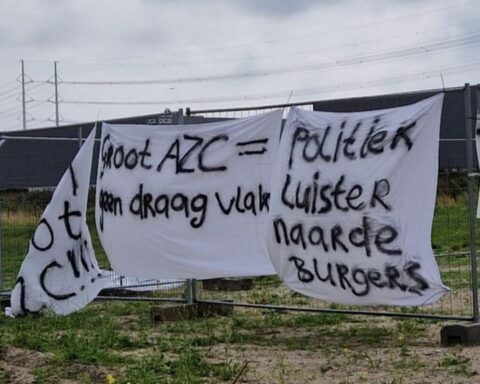 Groot AZC =
geen draag vlak
Politiek
Luister
naarde
BURGERS